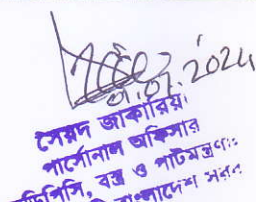 01.07.2024
সৈয়দ জাকারিয়া
পার্সোনাল অফিসার
বস্ত্র ও পাটমন্ত্রণা
বাংলাদেশ সরকা